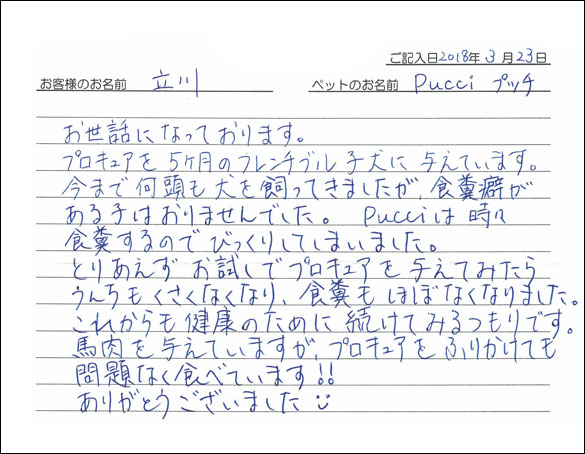 ご記入日2018年3月23日
お客様のお名前 立川 ペットのお名前 Pucci プッチ
お世話になっております。
プロキュアを5ヶ月のフレンチブル子犬に与えています。
今まで何頭も犬を飼ってきましたが、食糞癖が
ある子はおりませんでした。 Pucciは時々
食糞するのでびっくりしてしまいました。
とりあえずお試しでプロキュアを与えてみたら
うんちもくさくなくなり、食糞もほぼなくなりました。
これからも健康のために続けてみるつもりです。
馬肉を与えていますが、プロキュアをふりかけても
問題なく食べています!!
ありがとうございました